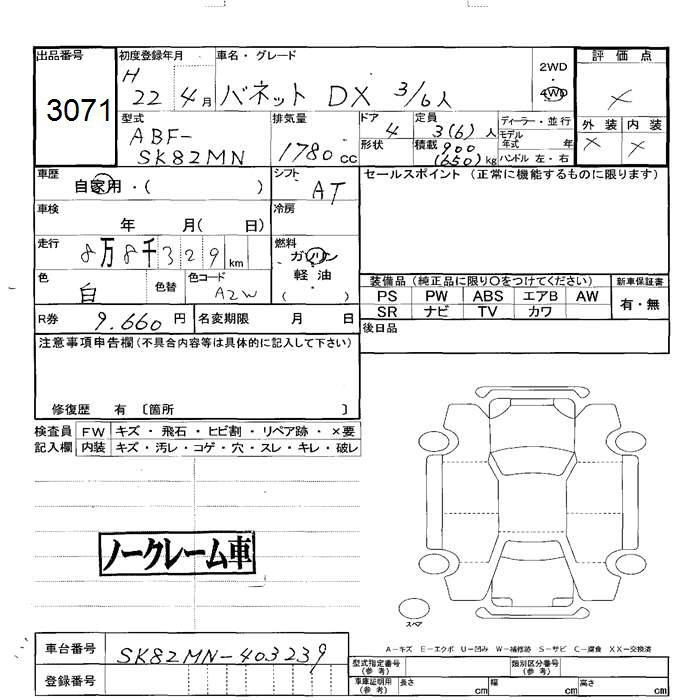 出品番号
3071
初度登録年月
H 22 4月
車名・グレード
バネット DX 3/6人
2WD
4WD
評価点
×
外装 内装
× ×
型式
ABF-
SK82MN
排気量
1780cc
ドア
4
形状
定員
3(6)人
積載 900
(650)kg
ディーラー・並行
モデル年式 年
ハンドル 左・右
車歴
自家用・( )
シフト
AT
セールスポイント (正常に機能するものに限ります)
車検
年 月( 日)
冷房
走行
8万8千329km
燃料
ガソリン
軽油
( )
色
白
色替
色コード
A2W
装備品(純正品に限り○をつけてください)
新車保証書
PS PW ABS エアB AW
SR ナビ TV カワ
有・無
R券 9.660円
名変期限 月 日
後日品
注意事項申告欄(不具合内容等は具体的に記入して下さい)
修復歴 有 〔箇所 〕
検査員 FW キズ・飛石・ヒビ割・リペア跡・×要
記入欄 内装 キズ・汚レ・コゲ・穴・スレ・キレ・破レ
ノークレーム車
スペア
A-キズ E-エクボ U-凹み W-補修跡 S-サビ C-腐食 XX-交換済
車台番号 SK82MN-403239
登録番号
型式指定番号
(参考)
類別区分番号
(参考)
車庫証明用
(参考)
長さ cm 幅 cm 高さ cm